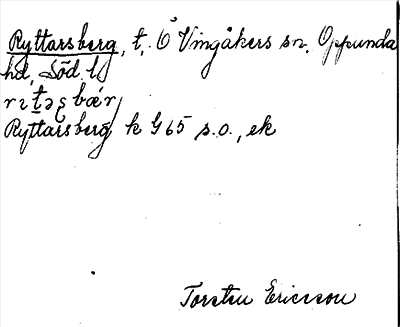 Ryttarsberg, t, Ö Vingåkers sn, Oppunda
hd, Söd. l.
Ryttarsberg k G 65 s.o., ek
Torsten Ericsson